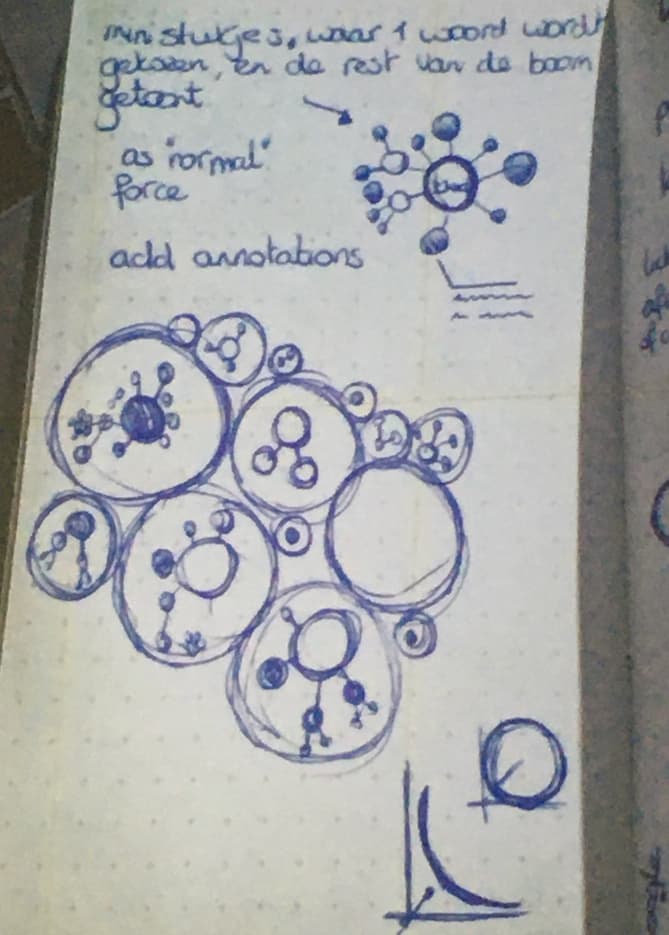 mini stukjes, waar 1 woord wordt
gekozen, en de rest van de boom
getoont
as "normal"
force
add annotations